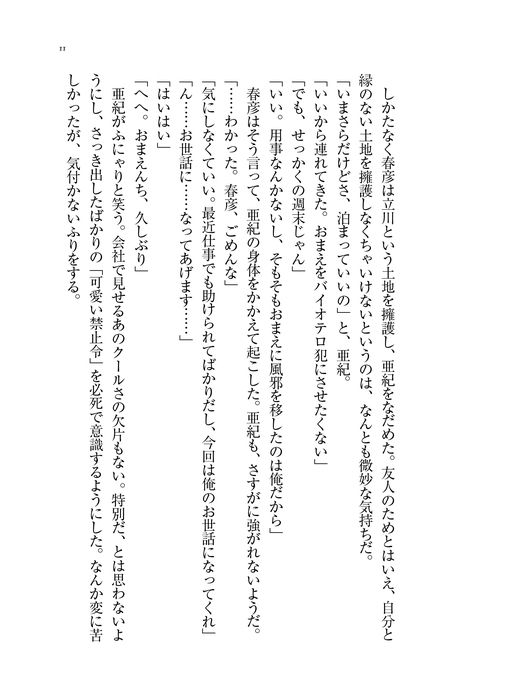 11
しかたなく春彦は立川という土地を擁護し、亜紀をなだめた。友人のためとはいえ、自分と
縁のない土地を擁護しなくちゃいけないというのは、なんとも微妙な気持ちだ。
「いまさらだけどさ、泊まっていいの」と、亜紀。
「いいから連れてきた。おまえをバイオテロ犯にさせたくない」
「でも、せっかくの週末じゃん」
「いい。用事なんかないし、そもそもおまえに風邪を移したのは俺だから」
春彦はそう言って、亜紀の身体をかかえて起こした。亜紀も、さすがに強がれないようだ。
「……わかった。春彦、ごめんな」
「気にしなくていい。最近仕事でも助けられてばかりだし、今回は俺のお世話になってくれ」
「ん……お世話に……なってあげます……」
「はいはい」
「へへ。おまえんち、久しぶり」
亜紀がふにゃりと笑う。会社で見せるあのクールさの欠片もない。特別だ、とは思わないよ
うにし、さっき出したばかりの「可愛い禁止令」を必死で意識するようにした。なんか変に苦
しかったが、気付かないふりをする。